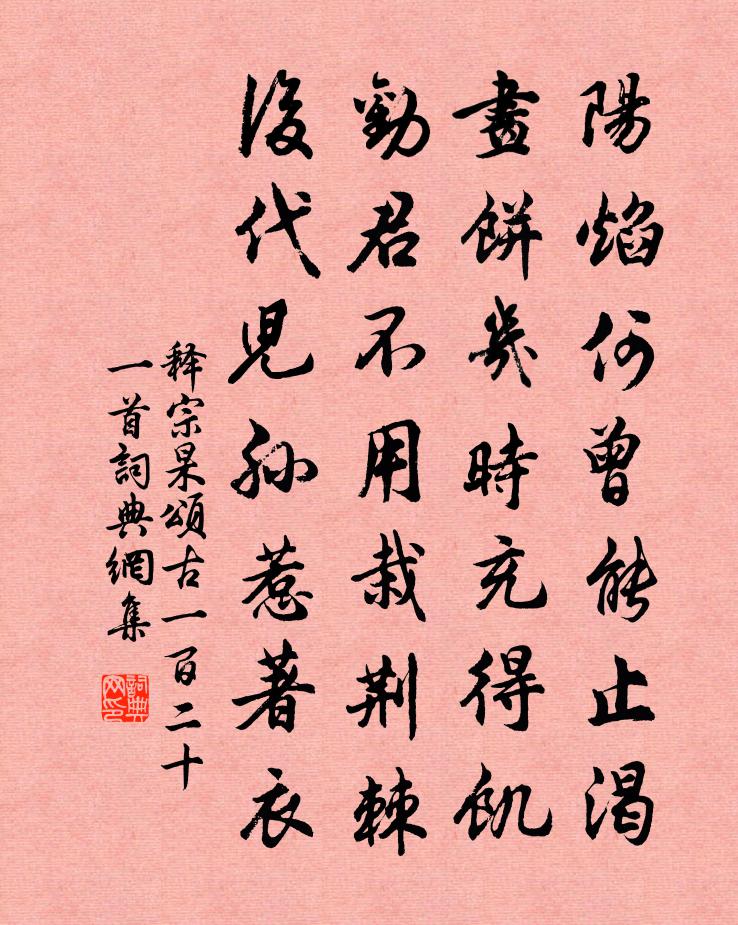 陽焰何曾能止渴
畫餅幾時充得飢
勸君不用栽荊棘
後代兒孫惹著衣
釋宗杲頌古一百二十
一首詞典網集
詞典網印